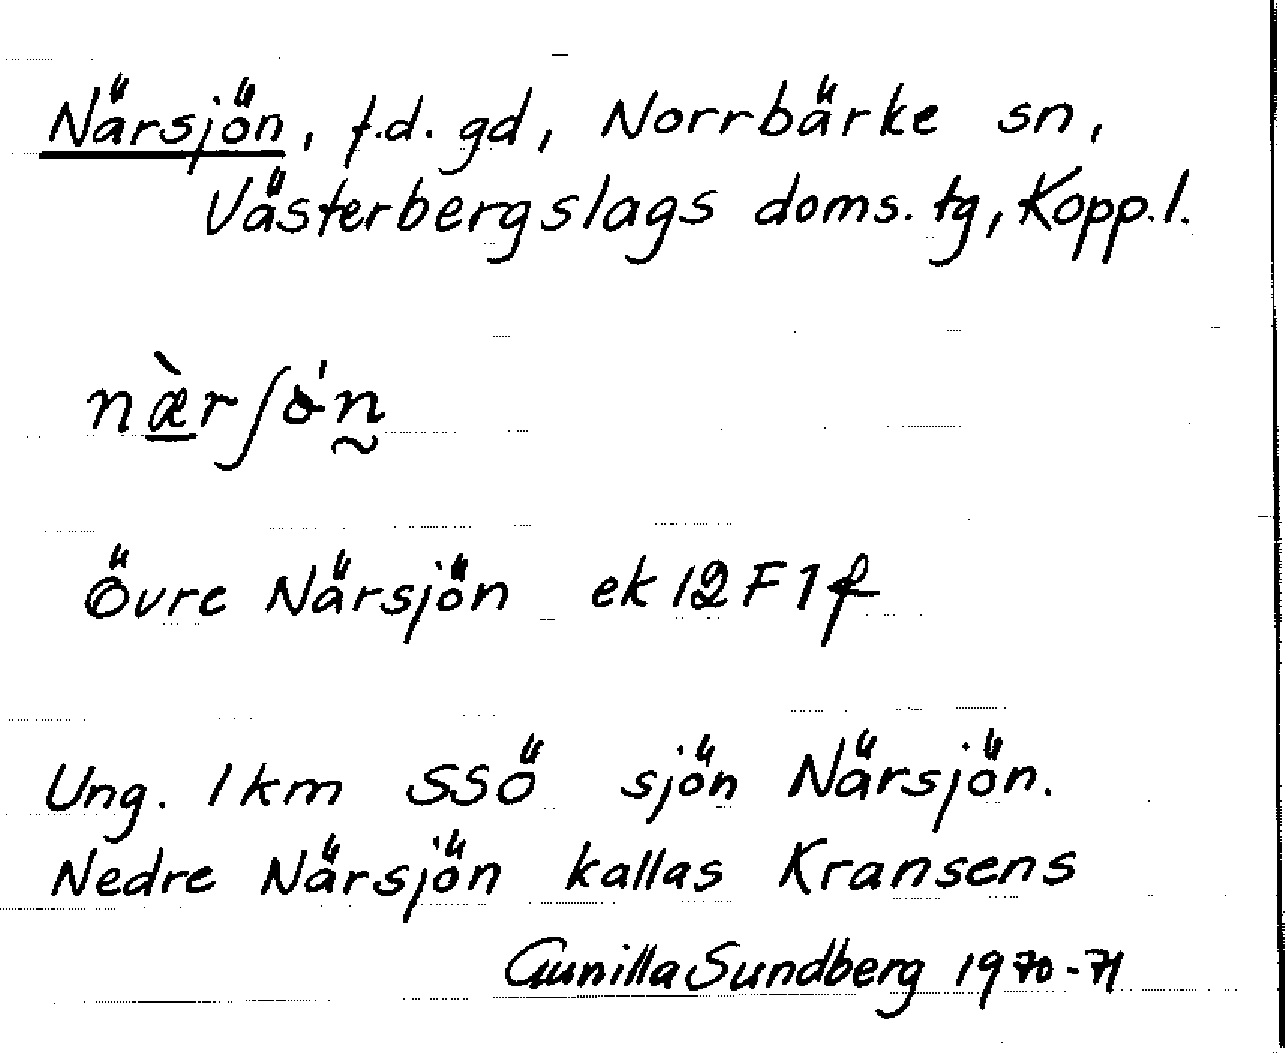 Närsjön, f.d. gd, Norrbärke sn,
Västerbergslags doms. tg, Kopp.l.
næ̀rʃòń̰
Övre Närsjön ek 12 F 1 f
Ung. 1 km SSÖ sjön Närsjön.
Nedre Närsjön kallas Kransens
Gunilla Sundberg 1970-71